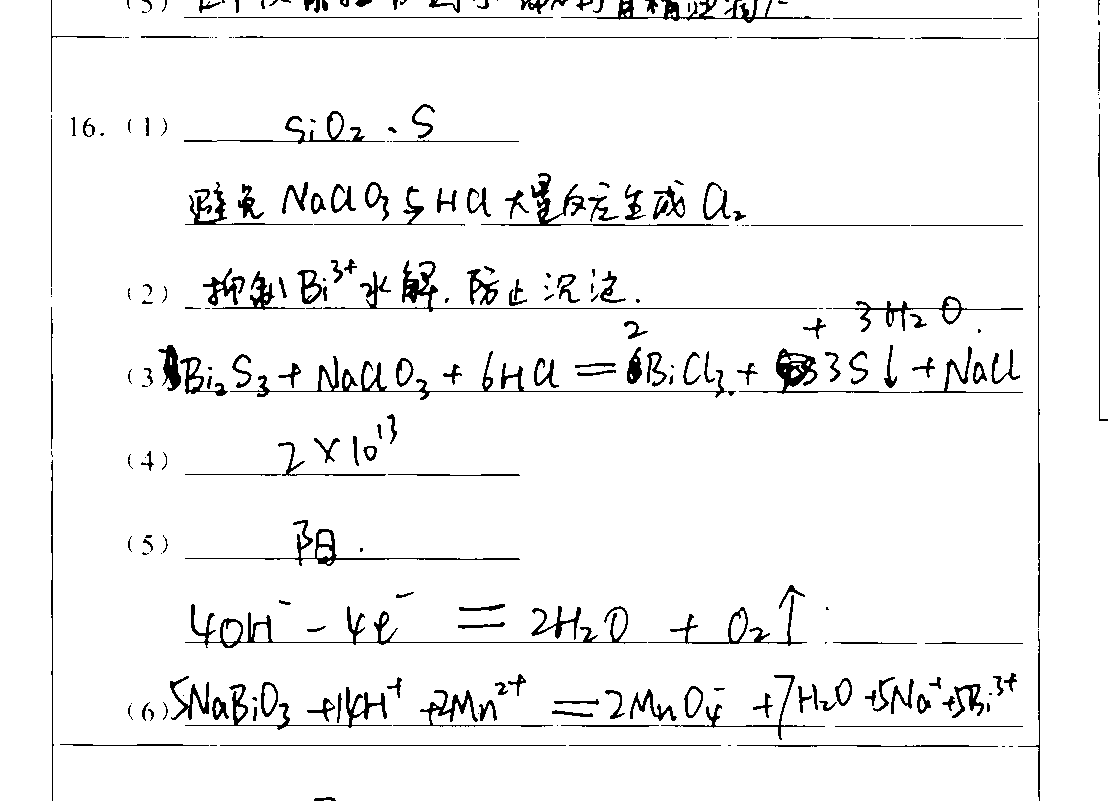 16. (1) SiO₂、S
避免NaClO₃与HCl大量反应生成Cl₂
(2) 抑制Bi³⁺水解.防止沉淀.
+ 3H₂O.
(3) Bi₂S₃ + NaClO₃ + 6HCl = 2BiCl₃ + 3S↓ + NaCl
(4) 2×10¹³
(5) 阳.
4OH⁻ - 4e⁻ = 2H₂O + O₂↑
(6) 5NaBiO₃ + 14H⁺ + 2Mn²⁺ = 2MnO₄⁻ + 7H₂O + 5Na⁺ + 5Bi³⁺